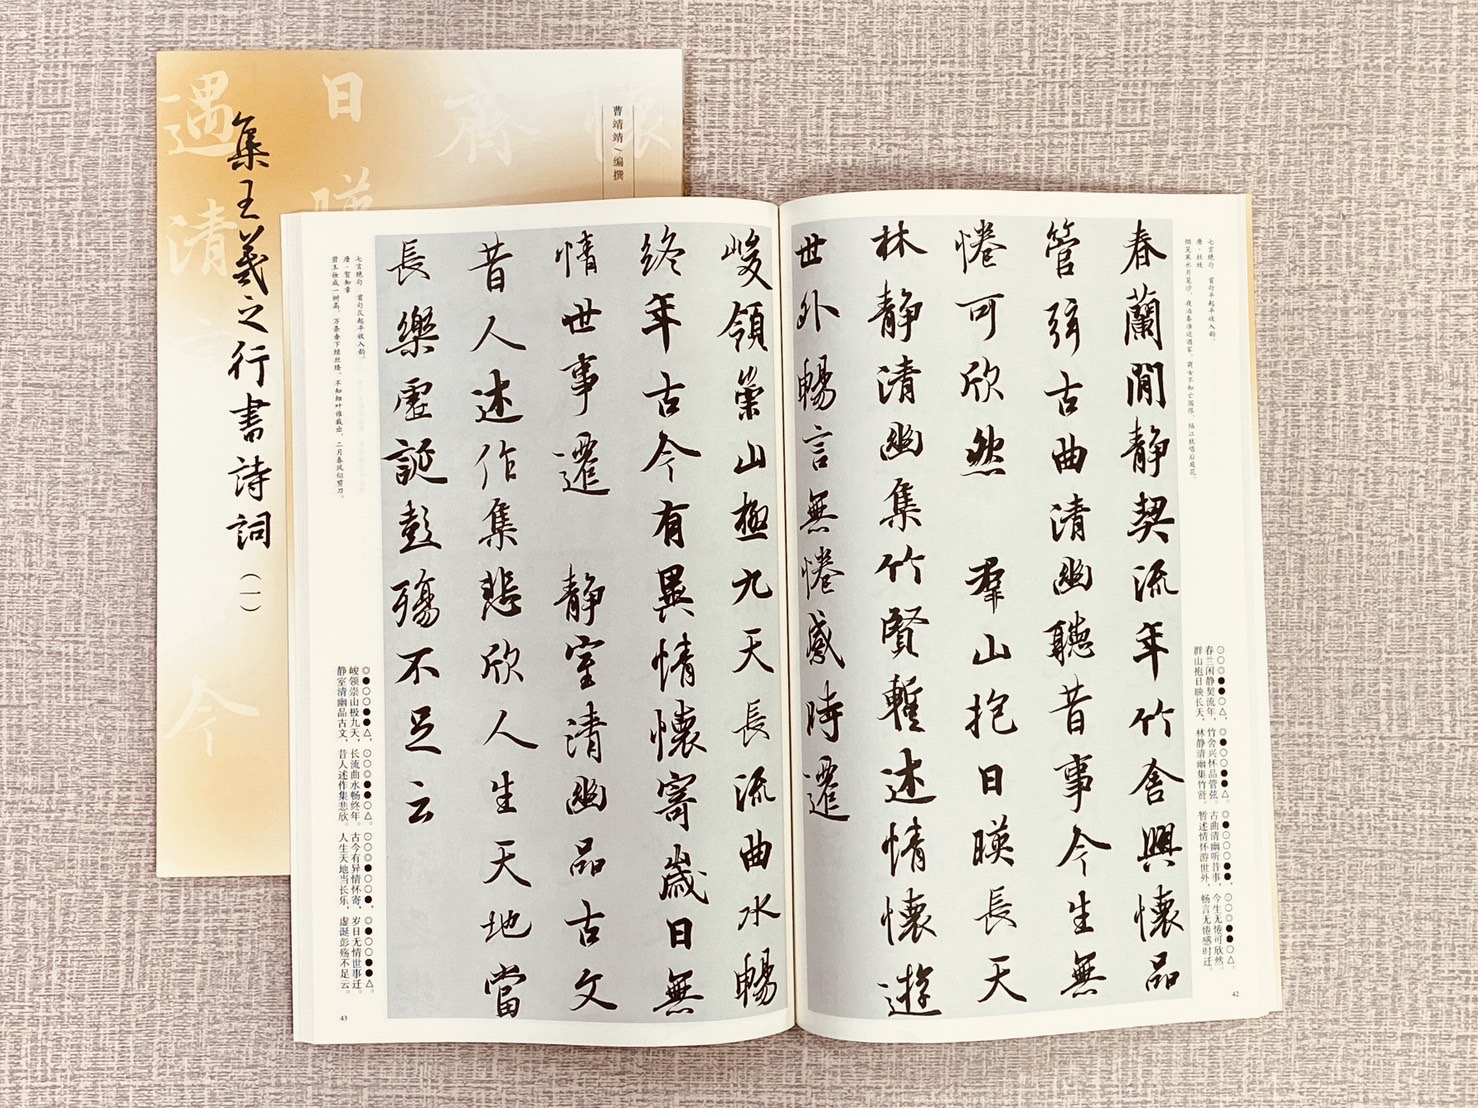 集王羲之行書詩詞（一）
曹靖靖／编撰
遇清言今
日暎
齋
懷
七言绝句　首句平起平收入韵。
唐·杜牧
烟笼寒水月笼沙，夜泊秦淮近酒家。商女不知亡国恨，隔江犹唱后庭花。
春蘭閒静契流年竹舍興懷品
管弦古曲清幽聽昔事今生無
惓可欣然　羣山抱日暎長天
林静清幽集竹賢暫述情懷遊
世外暢言無惓感時遷
⊙○◎●●○△，◎●○○●●△。◎●⊙○○●●，⊙○◎●●○△。
春兰闲静契流年，竹舍兴怀品管弦。古曲清幽听昔事，今生无惓可欣然。
群山抱日映长天，林静清幽集竹贤。暂述情怀游世外，畅言无惓感时迁。
42
峻領崇山極九天長流曲水暢
終年古今有異情懷寄歲日無
情世事遷　静室清幽品古文
昔人述作集悲欣人生天地當
長樂虛誕彭殤不足云
七言绝句　首句仄起平收入韵。
唐·贺知章
碧玉妆成一树高，万条垂下绿丝绦。不知细叶谁裁出，二月春风似剪刀。
◎●○○●●△，⊙○◎●●○△。⊙○◎●○○●，◎●○○●●△。
峻领崇山极九天，长流曲水畅终年。古今有异情怀寄，岁日无情世事迁。
静室清幽品古文，昔人述作集悲欣。人生天地当长乐，虚诞彭殇不足云。
43